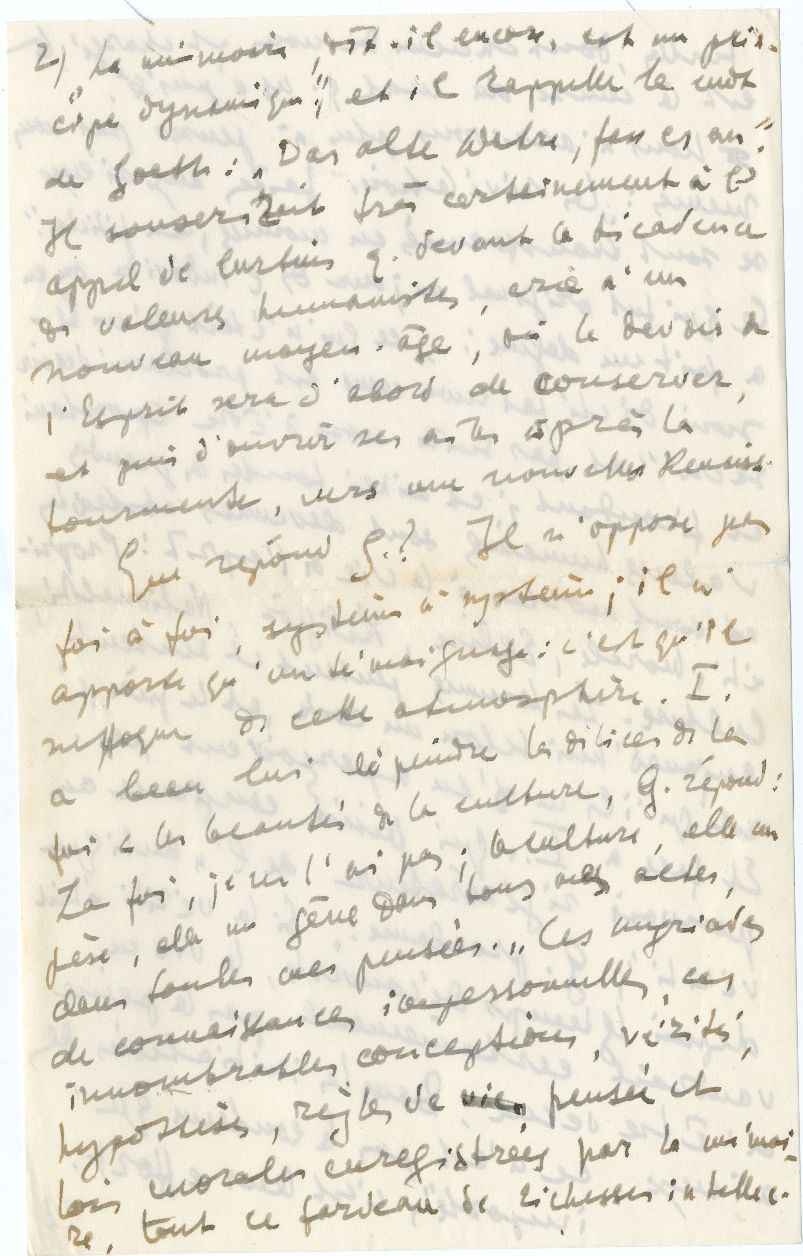 2) "La mémoire, dit-il encore, est un prin-
cipe dynamique", et il rappelle le mot
de Goethe: "Das alte Wahre, fass es an".
Il souscrirait très certainement à l'
appel de Curtius q. devant la décadence
ds valeurs humanistes, crie à un
nouveau moyen-âge, où le devoir de
l'Esprit sera d'abord de conserver,
et puis d'ouvrir ses ailes après la
tourmente, vers une nouvelle Renaiss.
Que répond G.? Il n'oppose pas
foi à foi, système à système; il n'
apporte qu'un témoignage: c'est qu'il
suffoque ds cette atmosphère. I.
a beau lui dépeindre les délices de la
foi et les beautés de la culture, G. répond:
La foi, je ne l'ai pas; la culture, elle me
pèse, elle me gêne dans tous mes actes,
dans toutes mes pensées. "Ces myriades
de connaissances impersonnelles, ces
innombrables conceptions, vérités,
hypothèses, règles de vie, pensée et
lois morales enregistrées par la mémoi-
re, tout ce fardeau de richesses intellec-